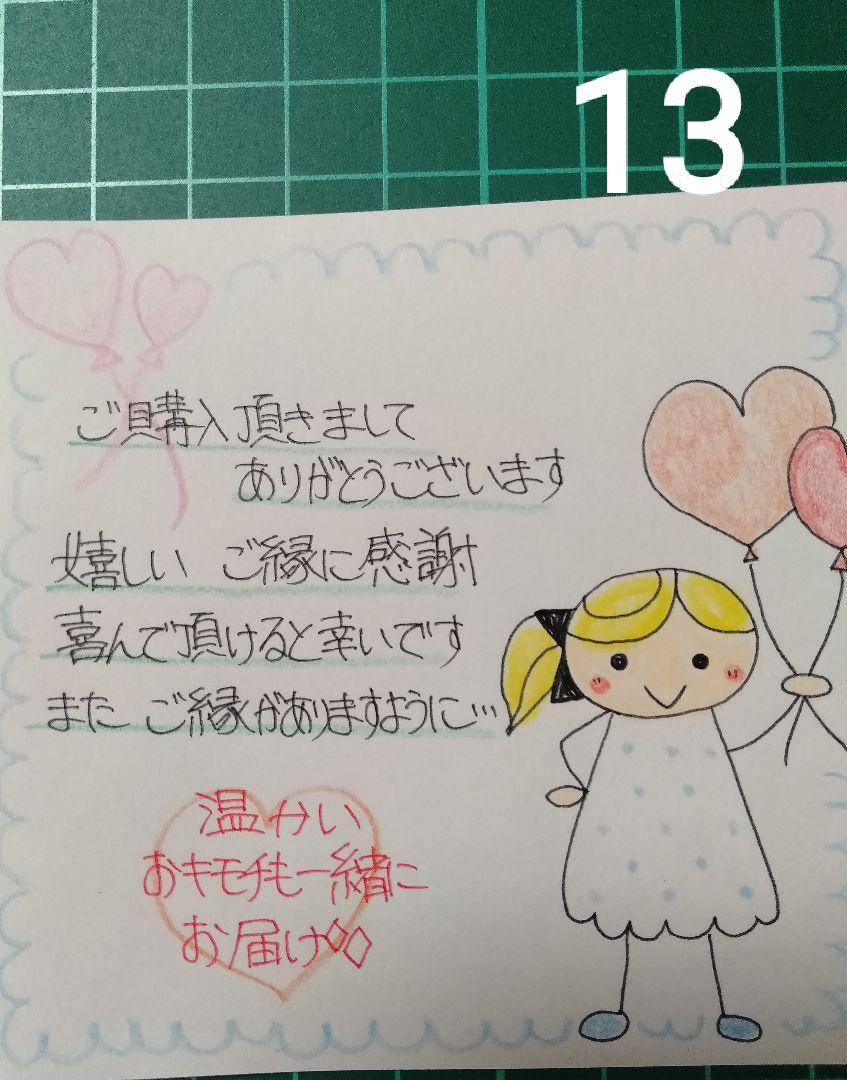 13
ご購入頂きまして
ありがとうございます
嬉しい ご縁に感謝
喜んで頂けると幸いです
また ご縁がありますように…
温かい
おキモチも一緒に
お届け◇◇